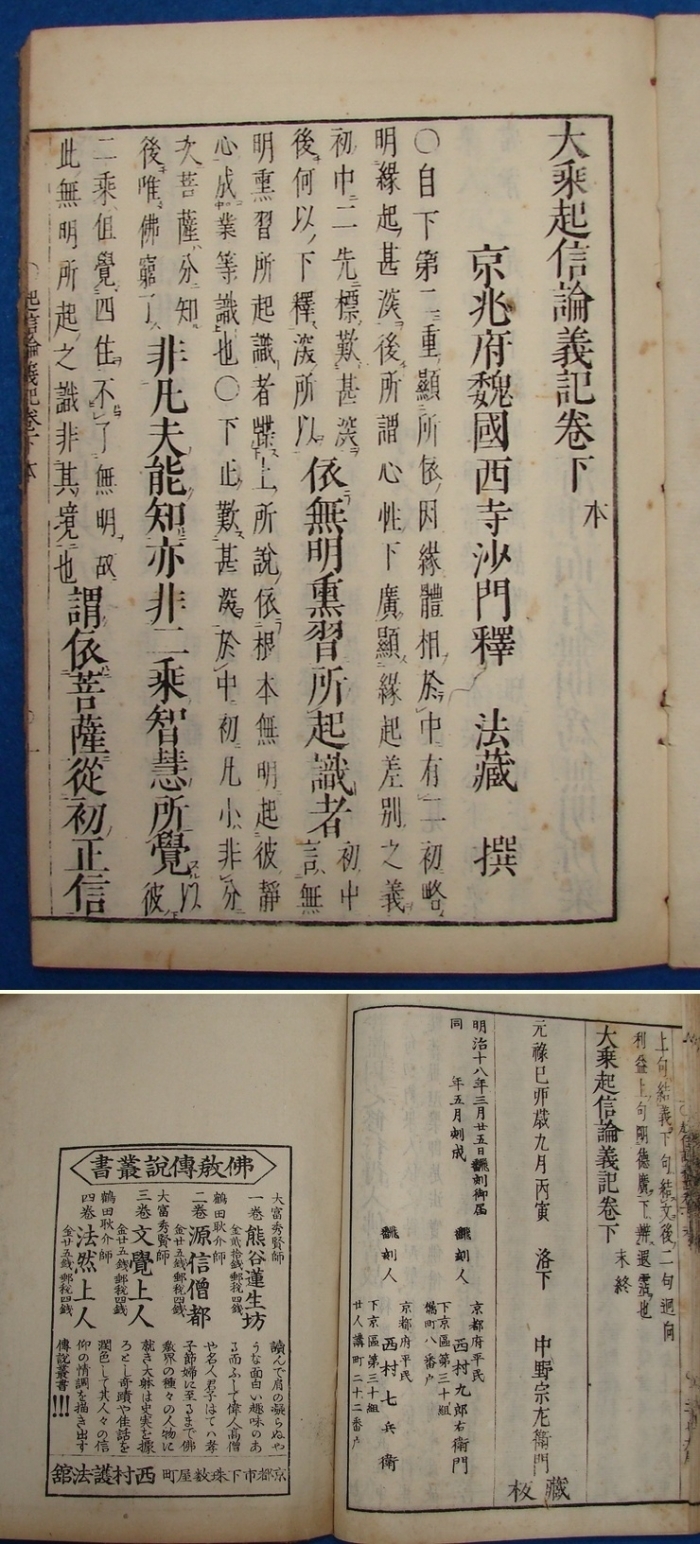 大乘起信論義記卷下 本
京兆府魏國西寺沙門釋 法藏 撰
〇自下第二重顯所依因緣體相於中有二初略
明緣起甚深後所謂心性下廣顯緣起差別之義
初中二先標歎甚深
後何以下釋深所以依無明熏習所起識者初中言無
明熏習所起識者牒上所說依根本無明起彼靜
心成業等識也〇下正歎甚深於中初凡小非分
次菩薩分知
後唯佛窮了非凡夫能知亦非二乘智慧所覺以彼
二乘但覺四住不了無明故
此無明所起之識非其境也謂依菩薩從初正信
起信論義記卷下本
上句結義下句結文後二句迴向
利益上句明德廣下辨還霑也
大乘起信論義記卷下 末終
元祿巳卯歲九月丙寅 洛下 中野宗左衛門
藏板
明治十八年三月廿五日飜刻御届
同 年五月刻成
飜刻人
京都府平民
西村九郎右衛門
下京區第三十組
八番戶
飜刻人
京都府平民
西村七兵衛
下京區第三十組
廿人講町二十二番戶
佛敎傳說叢書
大富秀賢師
一卷 熊谷蓮生坊
金貳拾錢郵稅四錢
鶴田耿介師
二卷 源信僧都
金廿五錢郵稅四錢
大富秀賢師
三卷 文覺上人
金廿五錢郵稅四錢
鶴田耿介師
四卷 法然上人
金廿五錢郵稅四錢
讀んで肩の凝らぬや
うな面白い趣味のあ
る而ふして偉人高僧
や名人君子はては孝
子節婦に至るまで佛
敎界の種々の人物に
就き大躰は史実を據
ろとし奇蹟や佳話を
潤色して其人々の信
仰の情調を描き出す
傳說叢書!!!
京都市下珠數屋町 西村護法館